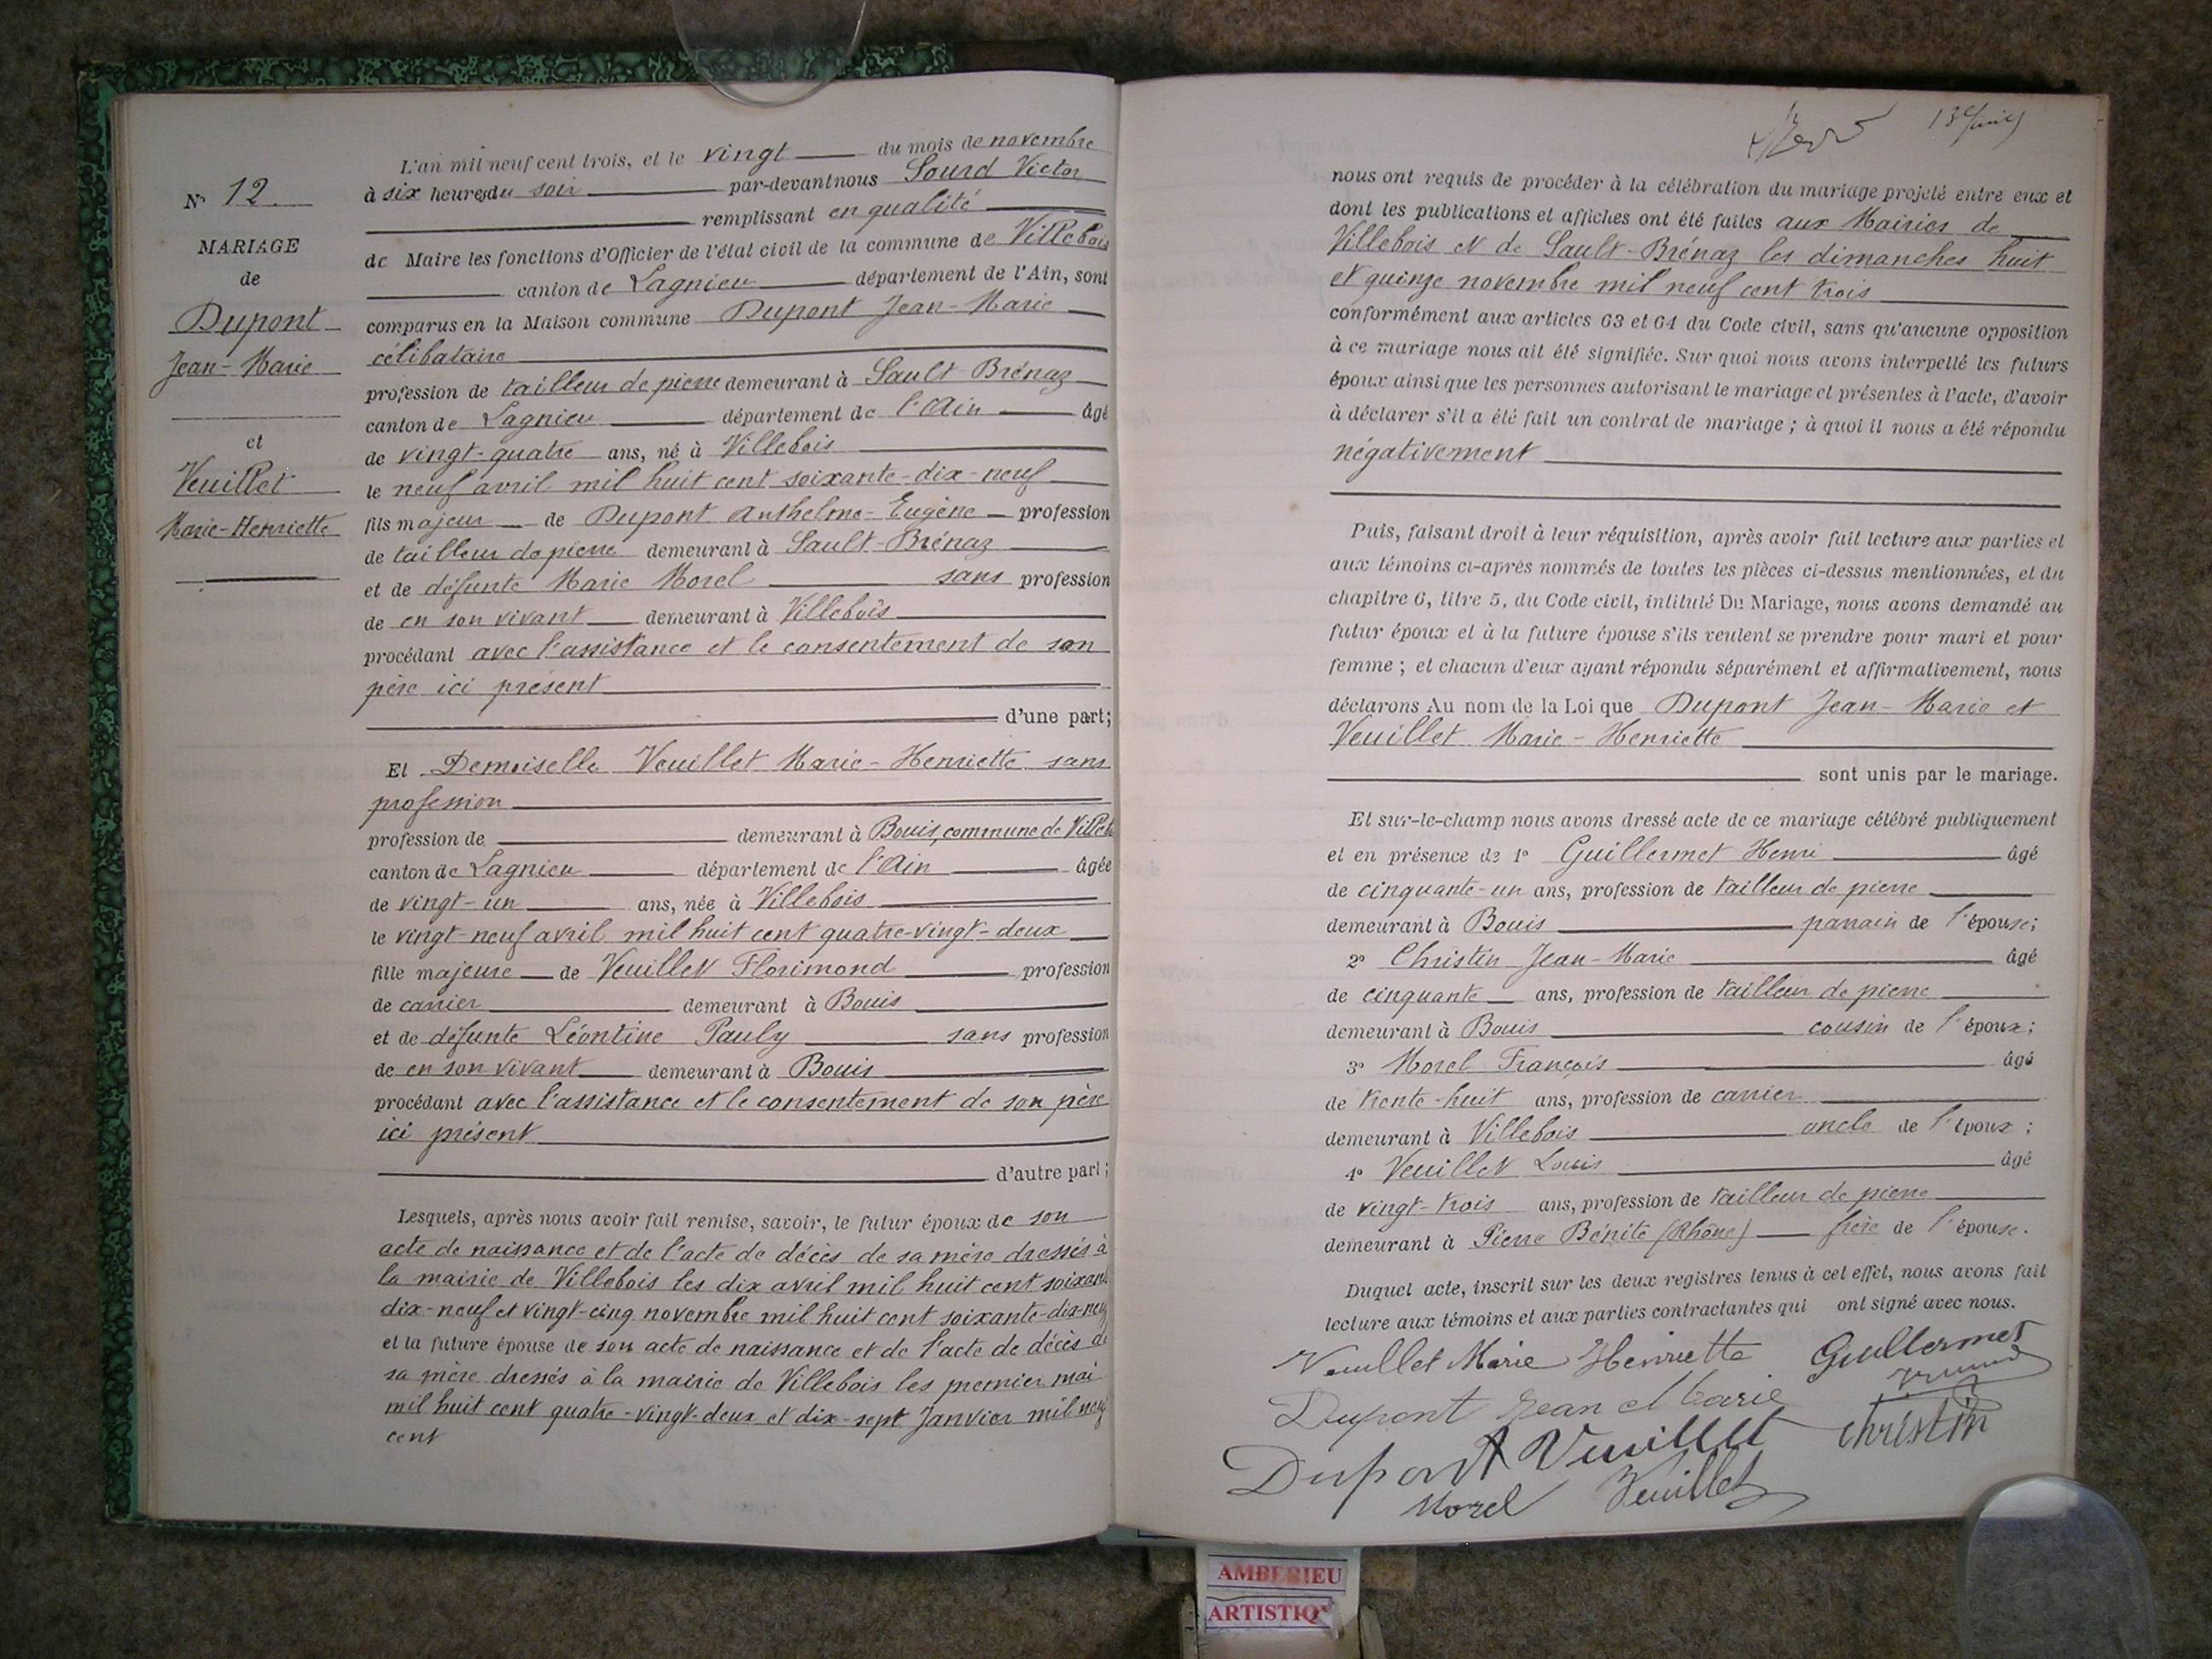 N° 12.
MARIAGE
de
Dupont
Jean-Marie
et
Veuillet
Marie-Henriette
L'an mil neuf cent trois, et le vingt du mois de novembre
à six heures du soir par-devant nous Sourd Victor
remplissant en qualité
de Maire les fonctions d'Officier de l'état civil de la commune de Villebois
canton de Lagnieu département de l'Ain, sont
comparus en la Maison commune Dupont Jean-Marie
célibataire
profession de tailleur de pierre demeurant à Sault-Brénaz
canton de Lagnieu département de l'Ain âgé
de vingt-quatre ans, né à Villebois
le neuf avril mil huit cent soixante-dix-neuf
fils majeur de Dupont Anthelme-Eugène profession
de tailleur de pierre demeurant à Sault-Brénaz
et de défunte Marie Morel sans profession
de en son vivant demeurant à Villebois
procédant avec l'assistance et le consentement de son
père ici présent
d'une part;
Et Demoiselle Veuillet Marie-Henriette sans
profession
profession de demeurant à Bouis, commune de Villeb
canton de Lagnieu département de l'Ain âgée
de vingt-un ans, née à Villebois
le vingt-neuf avril mil huit cent quatre-vingt-deux
fille majeure de Veuillet Florimond profession
de carrier demeurant à Bouis
et de défunte Léontine Pauly sans profession
de en son vivant demeurant à Bouis
procédant avec l'assistance et le consentement de son père
ici présent
d'autre part;
Lesquels, après nous avoir fait remise, savoir, le futur époux de son
acte de naissance et de l'acte de décès de sa mère dressés à
la mairie de Villebois les dix avril mil huit cent soixante
dix-neuf et vingt-cinq novembre mil huit cent soixante-dix-neuf
et la future épouse de son acte de naissance et de l'acte de décès de
sa mère dressés à la mairie de Villebois les premier mai
mil huit cent quatre-vingt-deux et dix-sept Janvier mil neuf
cent
nous ont requis de procéder à la célébration du mariage projeté entre eux et
dont les publications et affiches ont été faites aux Mairies de
Villebois et de Sault-Brénaz les dimanches huit
et quinze novembre mil neuf cent trois
conformément aux articles 63 et 64 du Code civil, sans qu'aucune opposition
à ce mariage nous ait été signifiée. Sur quoi nous avons interpellé les futurs
époux ainsi que les personnes autorisant le mariage et présentes à l'acte, d'avoir
à déclarer s'il a été fait un contrat de mariage ; à quoi il nous a été répondu
négativement
Puis, faisant droit à leur réquisition, après avoir fait lecture aux parties et
aux témoins ci-après nommés de toutes les pièces ci-dessus mentionnées, et du
chapitre 6, titre 5, du Code civil, intitulé Du Mariage, nous avons demandé au
futur époux et à la future épouse s'ils veulent se prendre pour mari et pour
femme ; et chacun d'eux ayant répondu séparément et affirmativement, nous
déclarons Au nom de la Loi que Dupont Jean-Marie et
Veuillet Marie-Henriette
sont unis par le mariage.
Et sur-le-champ nous avons dressé acte de ce mariage célébré publiquement
et en présence de 1° Guillermet Henri âgé
de cinquante-un ans, profession de tailleur de pierre
demeurant à Bouis parrain de l'épouse;
2° Christin Jean-Marie âgé
de cinquante ans, profession de tailleur de pierre
demeurant à Bouis cousin de l'époux;
3° Morel François âgé
de trente-huit ans, profession de carrier
demeurant à Villebois oncle de l'époux ;
4° Veuillet Louis âgé
de vingt-trois ans, profession de tailleur de pierre
demeurant à Pierre Bénite (Rhône) frère de l'épouse.
Duquel acte, inscrit sur les deux registres tenus à cet effet, nous avons fait
lecture aux témoins et aux parties contractantes qui ont signé avec nous.
Veuillet Marie Henriette Guillermet
Dupont Jean Marie
Dupont Veuillet Christin
Morel Veuillet
AMBERIEU
ARTISTIQ